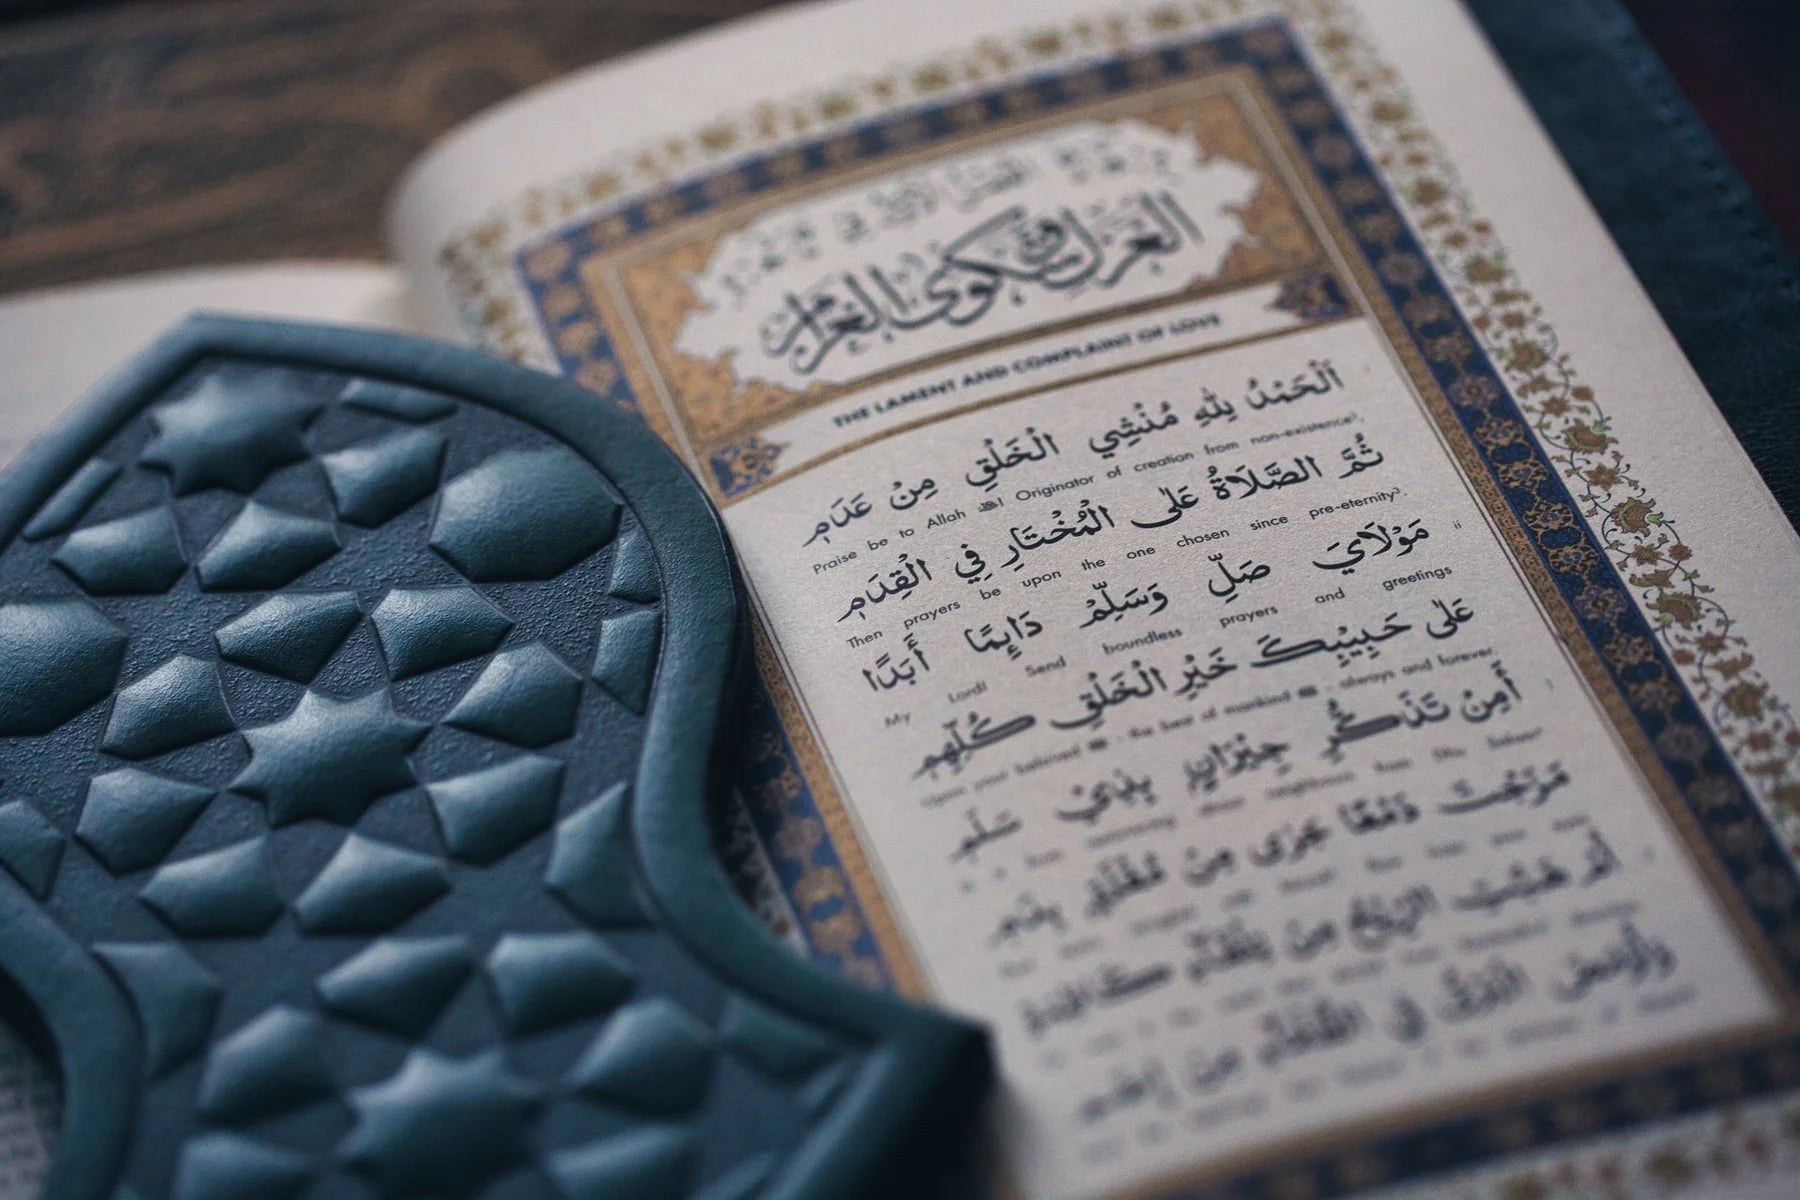 الفصل الأول في
الغزل وشكوى الغرام
THE LAMENT AND COMPLAINT OF LOVE
اَلْحَمْدُ لِلّٰهِ مُنْشِي الْخَلْقِ مِنْ عَدَمٍ
Praise be to Allah ﷻ! Originator of creation from non-existence¹,
ثُمَّ الصَّلَاةُ عَلَى الْمُخْتَارِ فِي الْقِدَمِ
Then prayers be upon the one chosen since pre-eternity².
مَوْلَايَ صَلِّ وَسَلِّمْ دَائِمًا أَبَدًا
ii
My Lord! Send boundless prayers and greetings
عَلَى حَبِيبِكَ خَيْرِ الْخَلْقِ كُلِّهِمِ
Upon your beloved ﷺ - the best of mankind ﷺ - always and forever.
أَمِنْ تَذَكُّرِ جِيْرَانٍ بِذِي سَلَمٍ
neighbours from Dhu Salam
مَزَجْتَ دَمْعًا جَرَى مِنْ مُقْلَةٍ بِدَمِ
أَمْ هَبَّتِ الرِّيْحُ مِنْ تِلْقَاءِ كَاظِمَةٍ
وَأَوْمَضَ الْبَرْقُ فِي الظَّلْمَاءِ مِنْ إِضَمِ